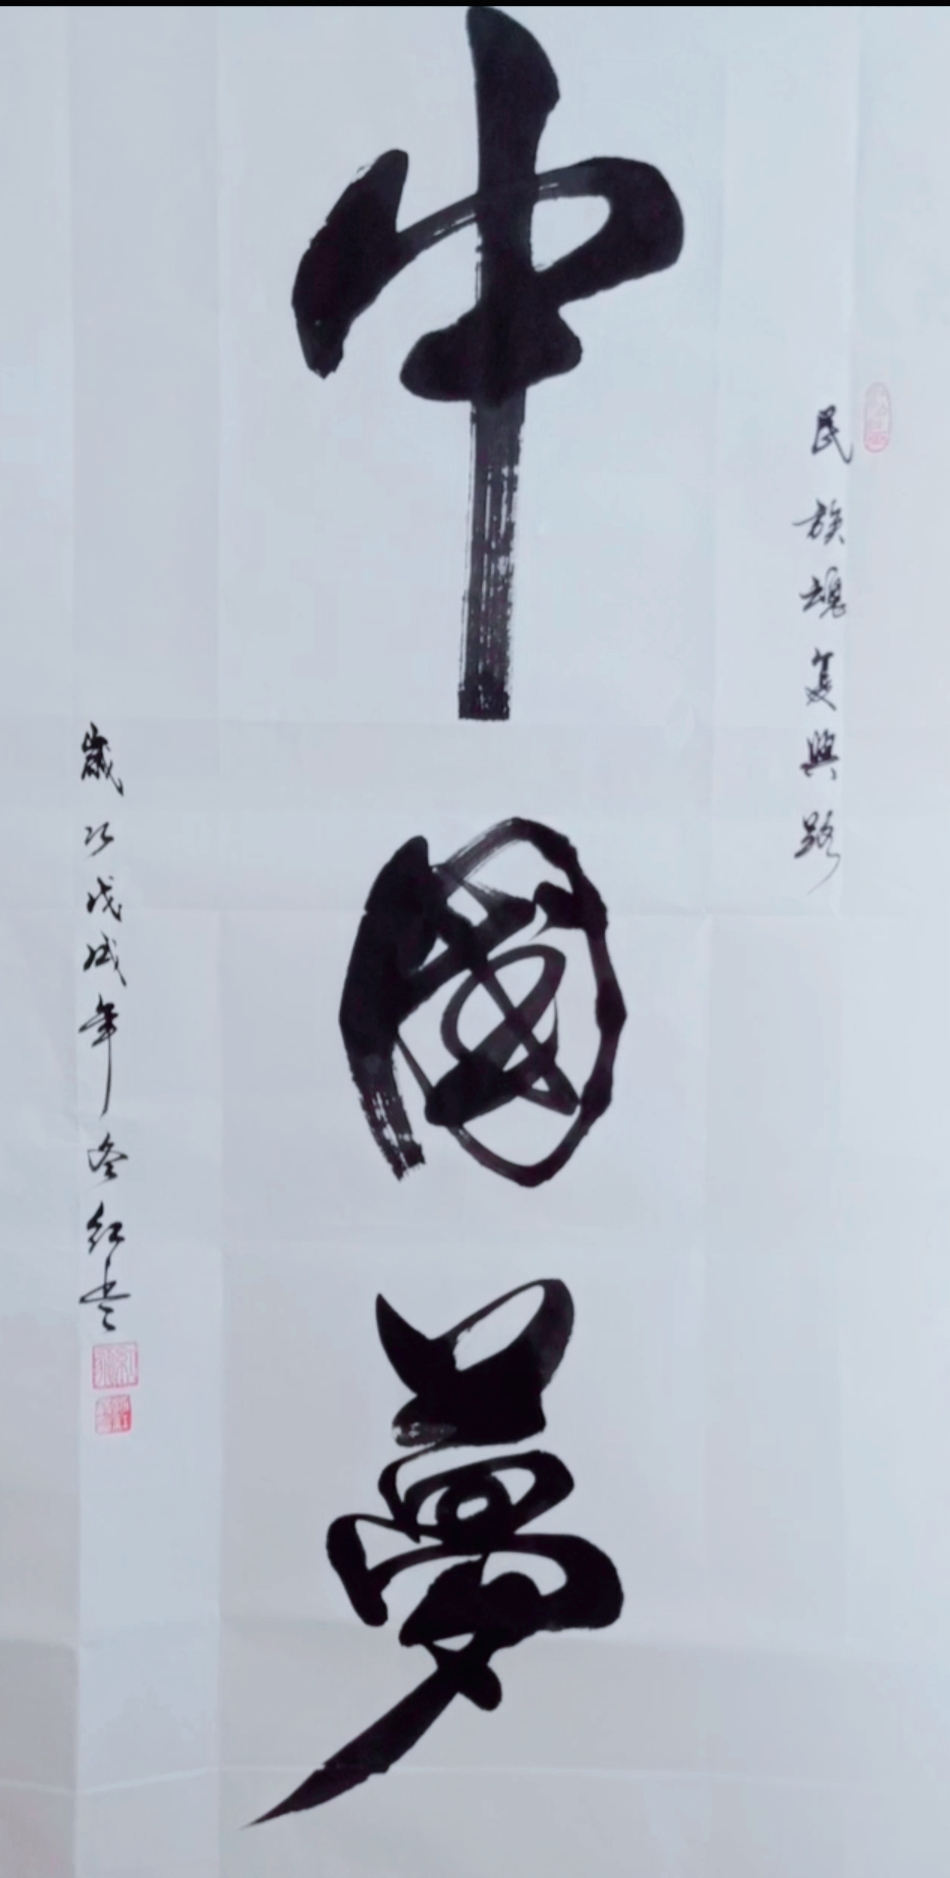 民族魂复興路
中國夢
歲次戊戌年冬紅書